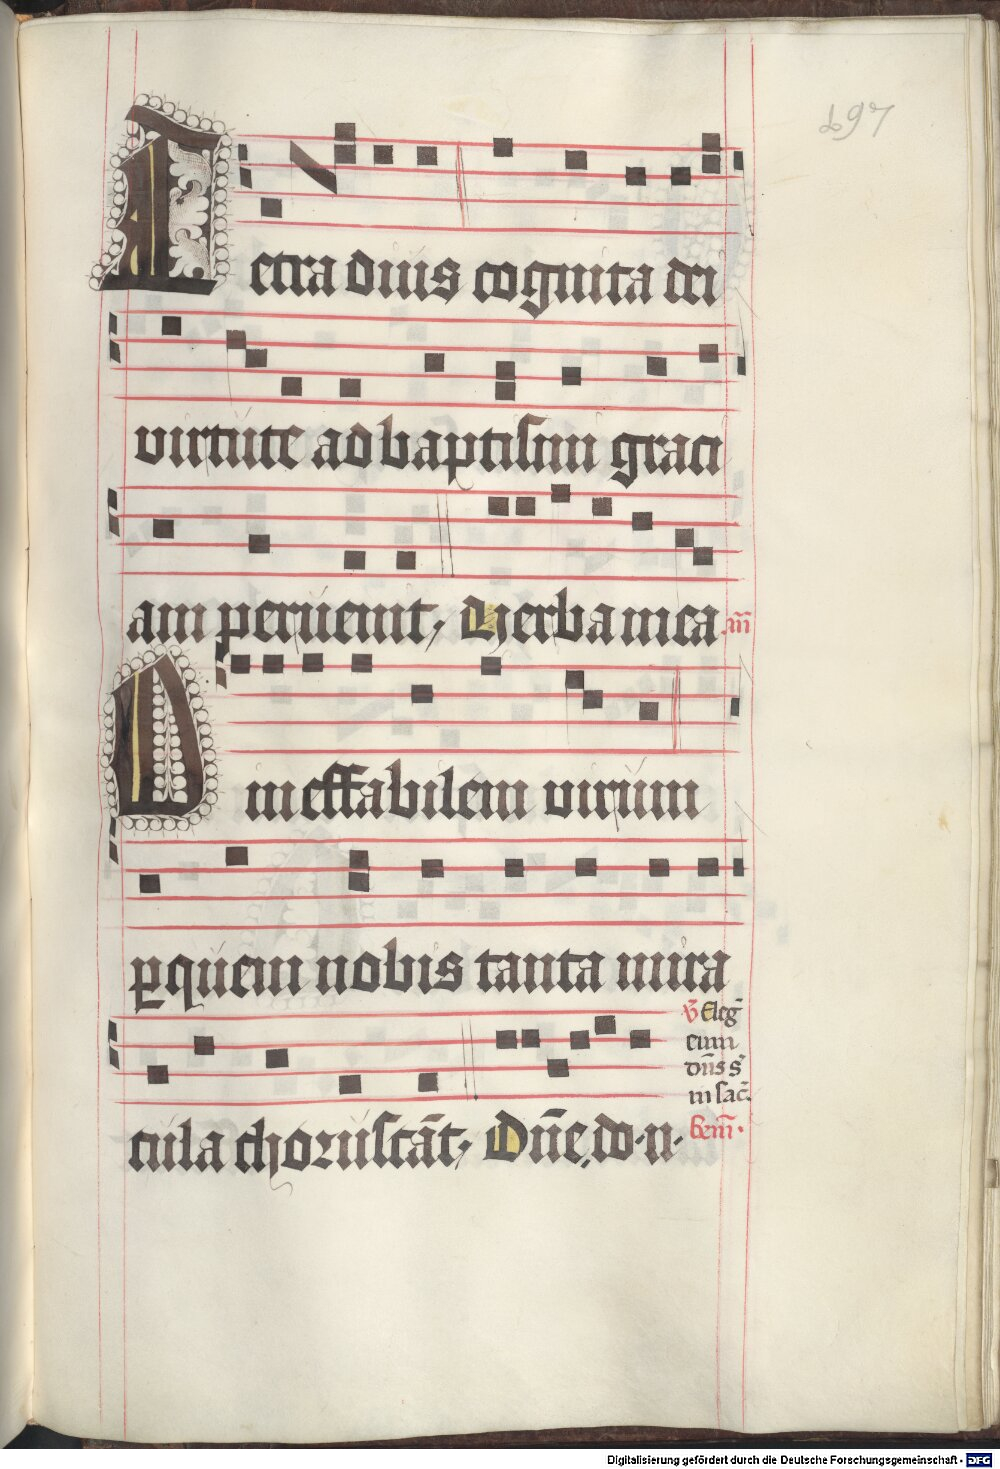 697
Letra diuis cognita dei
virtute ad baptismi graci
am peruenit, Verba mea
añ
Vineffabilem virum
ꝑquem nobis tanta mira
v̄ Eleg̃
cula choruscãt, Dñe, do· n·
eum
dñs s̃
in sac̃.
ben̄·
Digitalisierung gefördert durch die Deutsche Forschungsgemeinschaft - DFG